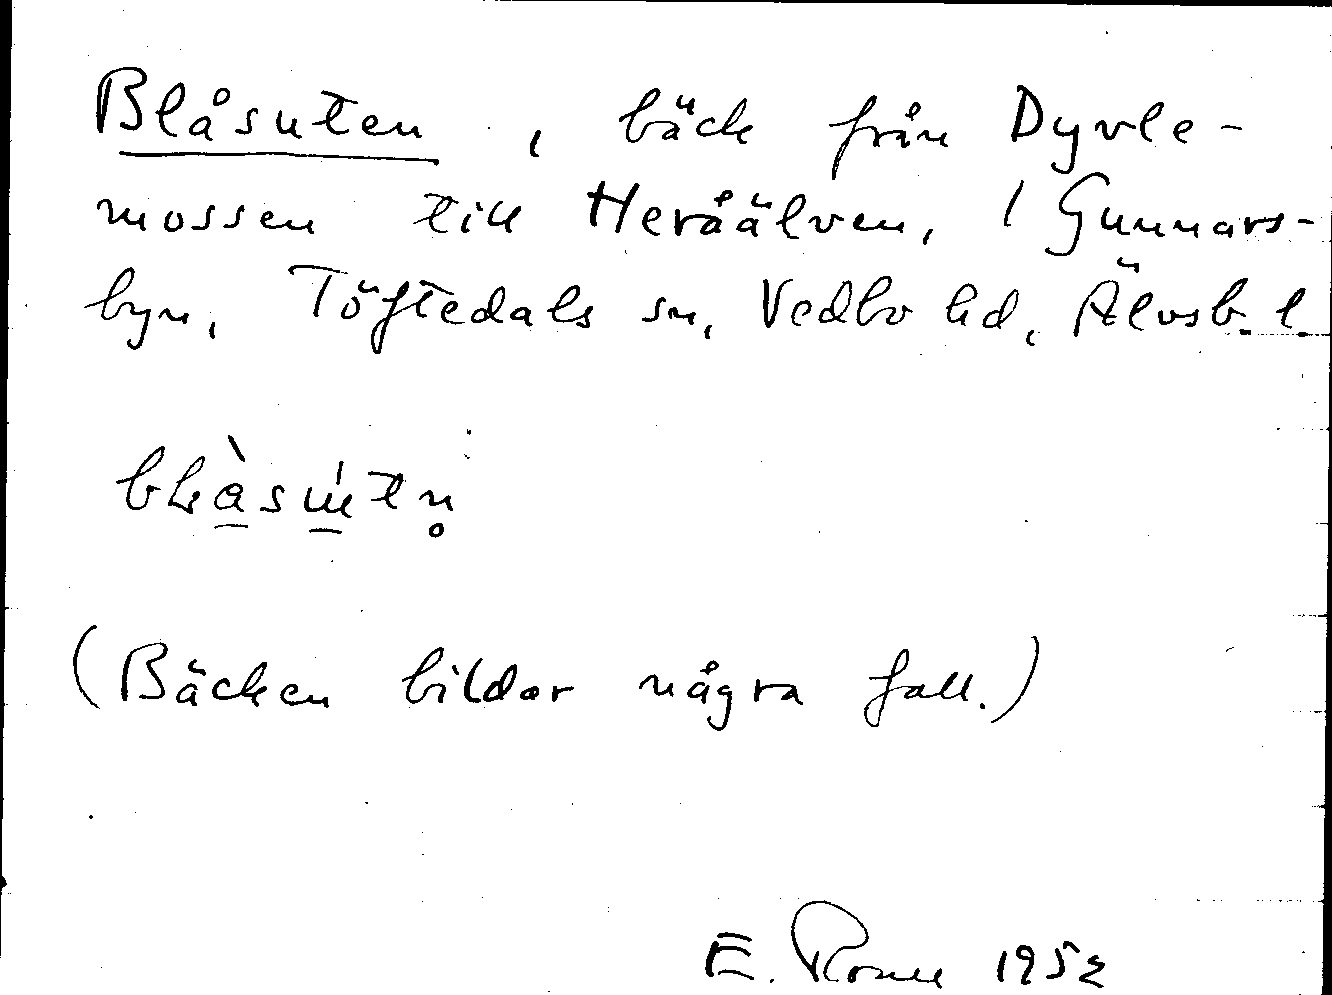 Blåsuten, bäck från Dyvle-
mossen till Heråälven, / Gunnars-
byn, Töftedals sn, Vedbo hd, Älvsb. l.
(Bäcken bildar några fall.)
E. 1952